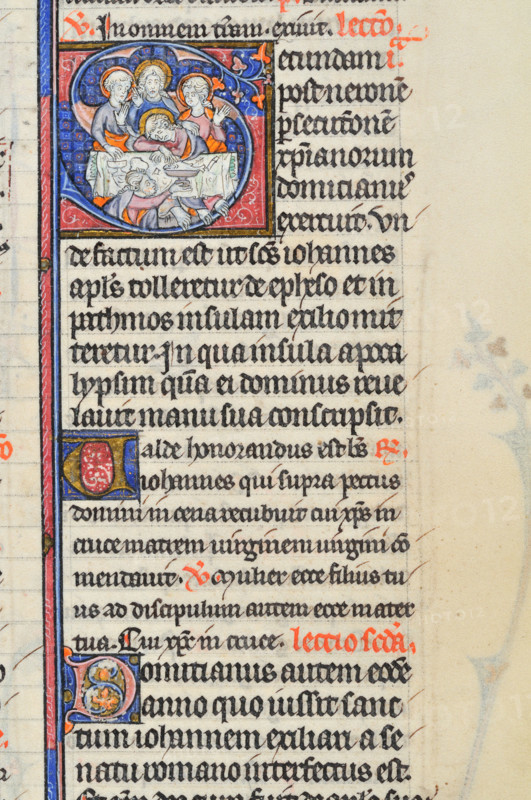 V. In omnem tr̄am. exiuit. lectio
Secundam i.
post neronē
ꝑsecutionē
xp̄ianorum
domicianus
exercuit. Vn
de factum est ut sc̄s iohannes
apl̄s tolleretur de epheso et in
pathmos insulam exilio mit
teretur. In qua insula apoca
lypsim quā ei dominus reue
lauit manu sua conscripsit.
Valde honorandus est bs̄ R.
iohannes qui supra pectus
domini in cena recubuit cui xp̄s in
cruce matrem uirginem uirgini cō
mendauit. V. Mulier ecce filius tu
us ad discipulum autem ecce mater
tua. Cui xp̄c in cruce. lectio scd̄a.
Domitianus autem eodē
anno quo iussit sanc
tum iohannem exiliari a se
natu romano interfectus est.